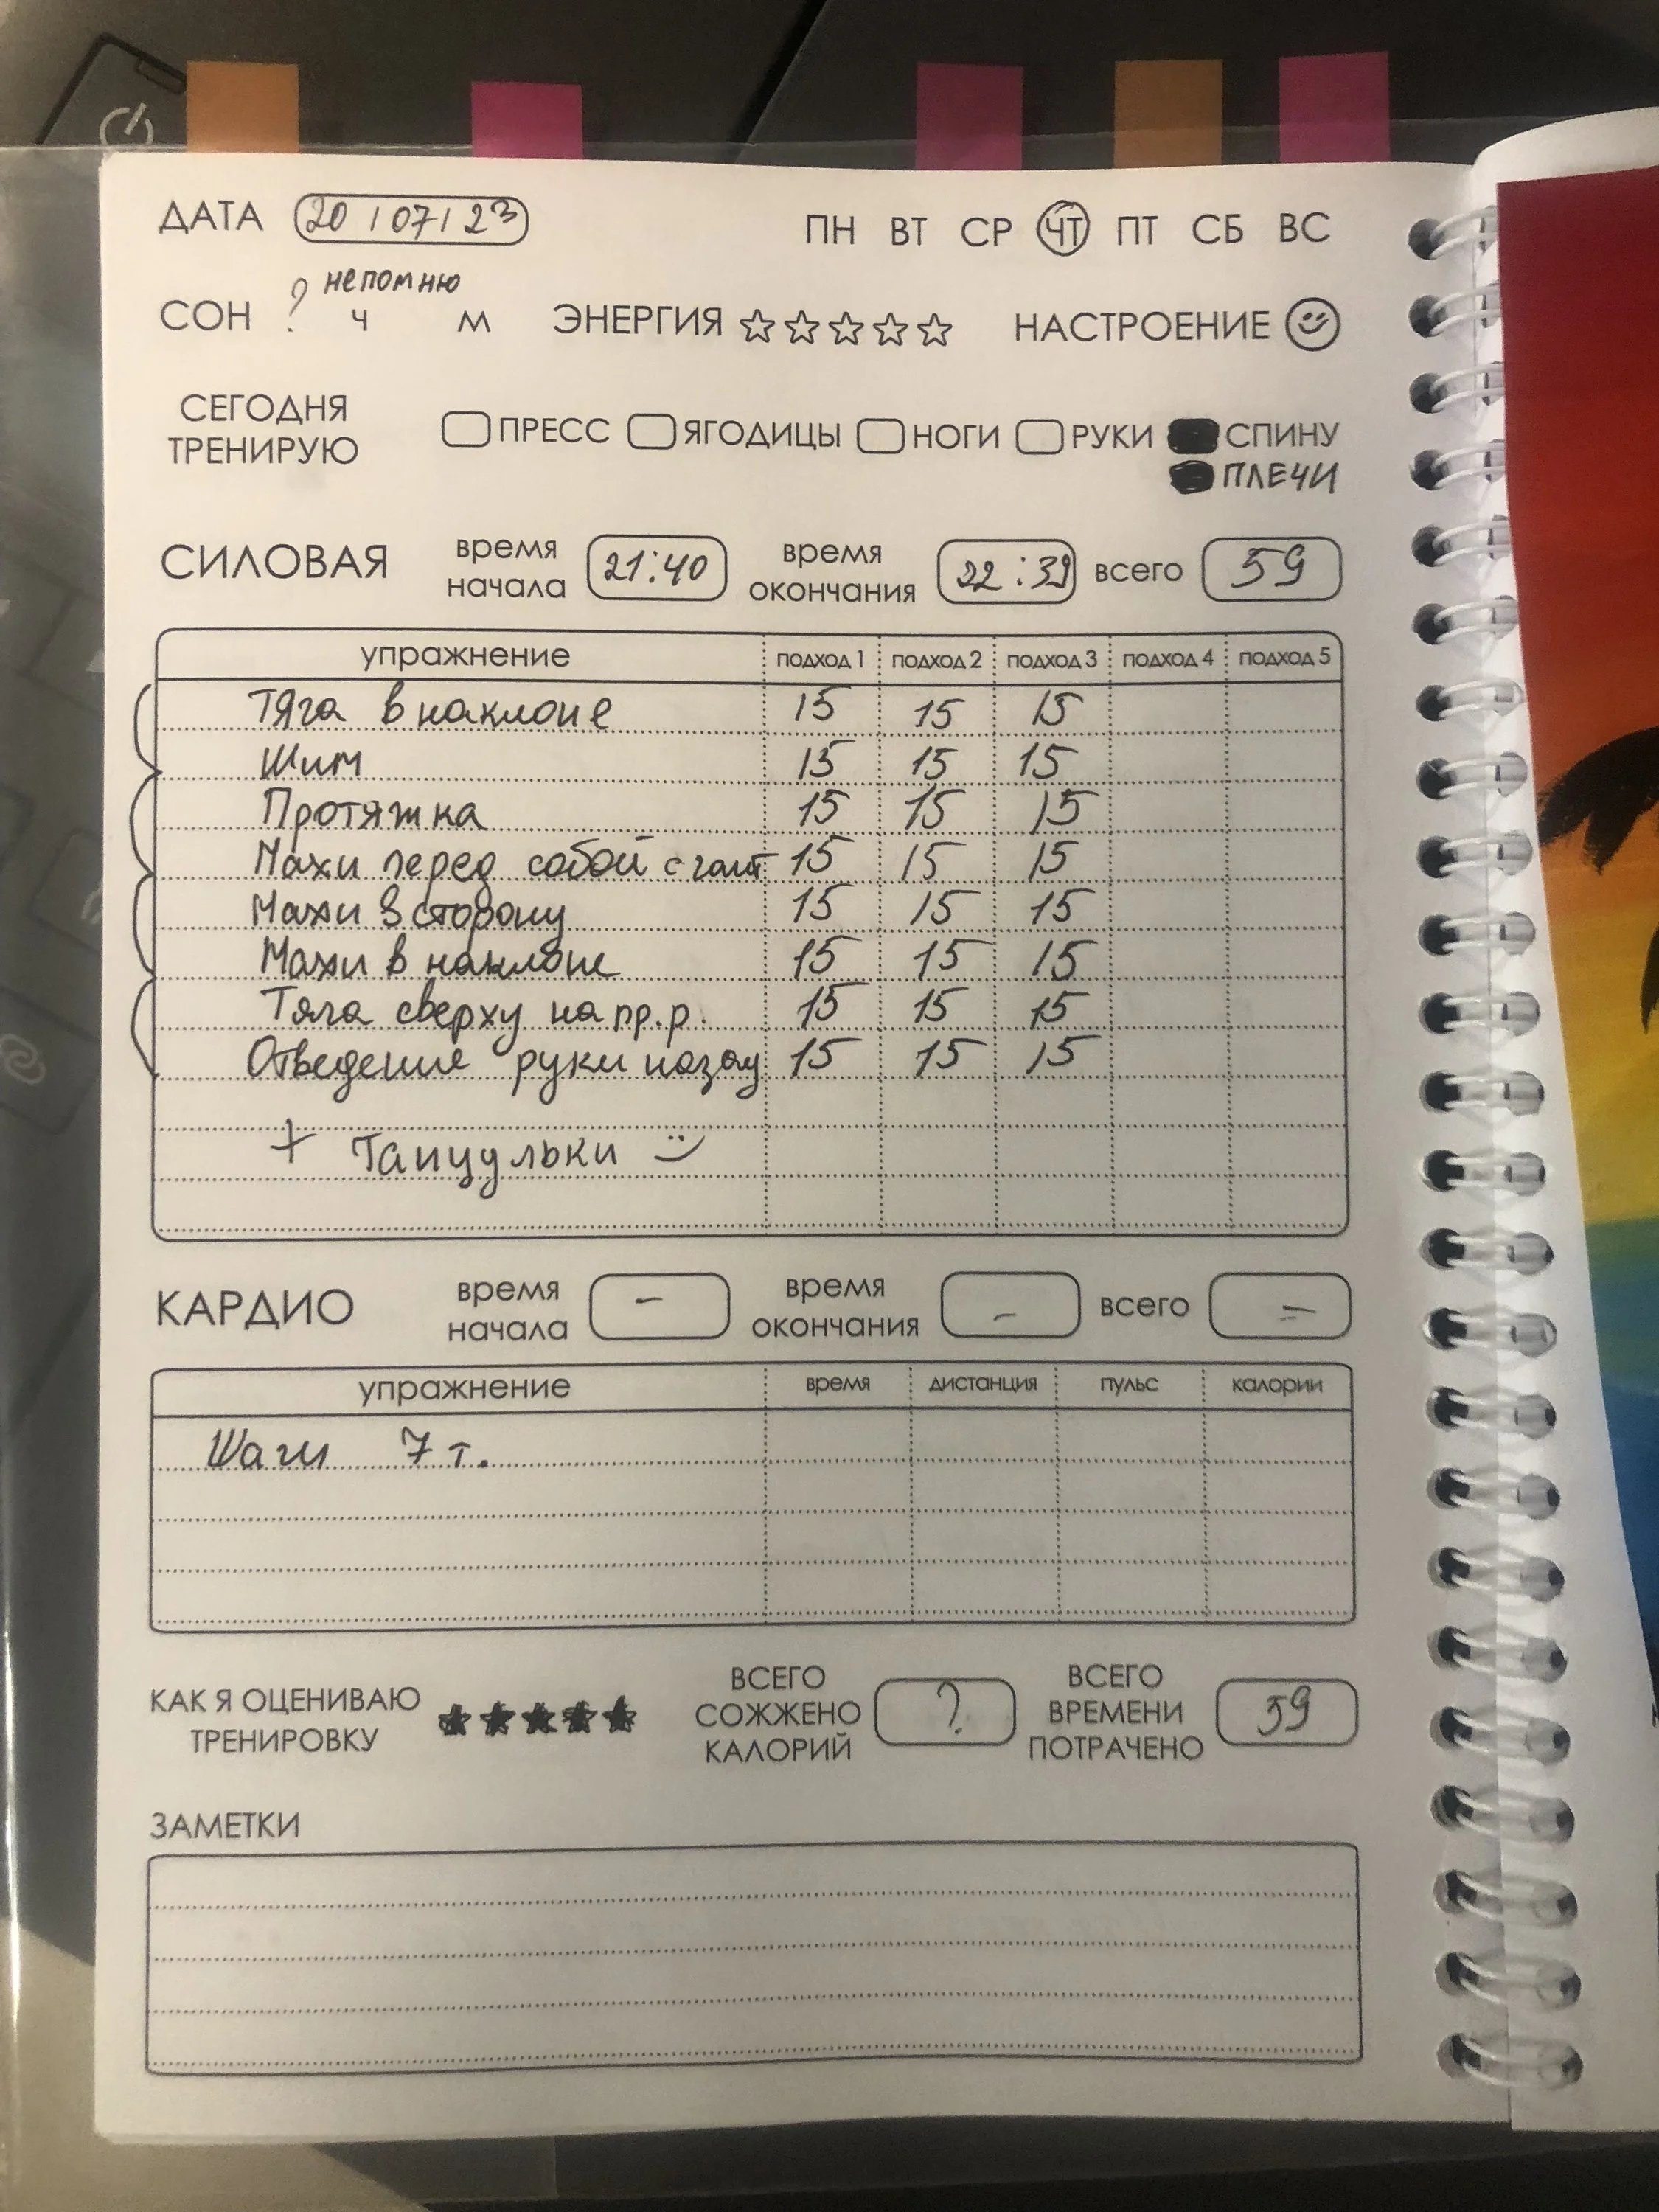 ДАТА 20/07/23 ПН ВТ СР ЧТ ПТ СБ ВС
непомню
СОН ? Ч М ЭНЕРГИЯ НАСТРОЕНИЕ
СЕГОДНЯ ТРЕНИРУЮ ПРЕСС ЯГОДИЦЫ НОГИ РУКИ СПИНУ
ПЛЕЧИ
СИЛОВАЯ время начала 21:40 время окончания 22:39 всего 59
упражнение подход 1 подход 2 подход 3 подход 4 подход 5
Тяга в наклоне 15 15 15
Жим 15 15 15
Протяжка 15 15 15
Махи перед собой с гант 15 15 15
Махи в сторону 15 15 15
Махи в наклоне 15 15 15
Тяга сверху на пр.р. 15 15 15
Отведение руки назад 15 15 15
+ Танцульки
КАРДИО время начала – время окончания – всего =
упражнение время дистанция пульс калории
Шаги 7 т.
КАК Я ОЦЕНИВАЮ ТРЕНИРОВКУ ВСЕГО СОЖЖЕНО КАЛОРИЙ ? ВСЕГО ВРЕМЕНИ ПОТРАЧЕНО 59
ЗАМЕТКИ